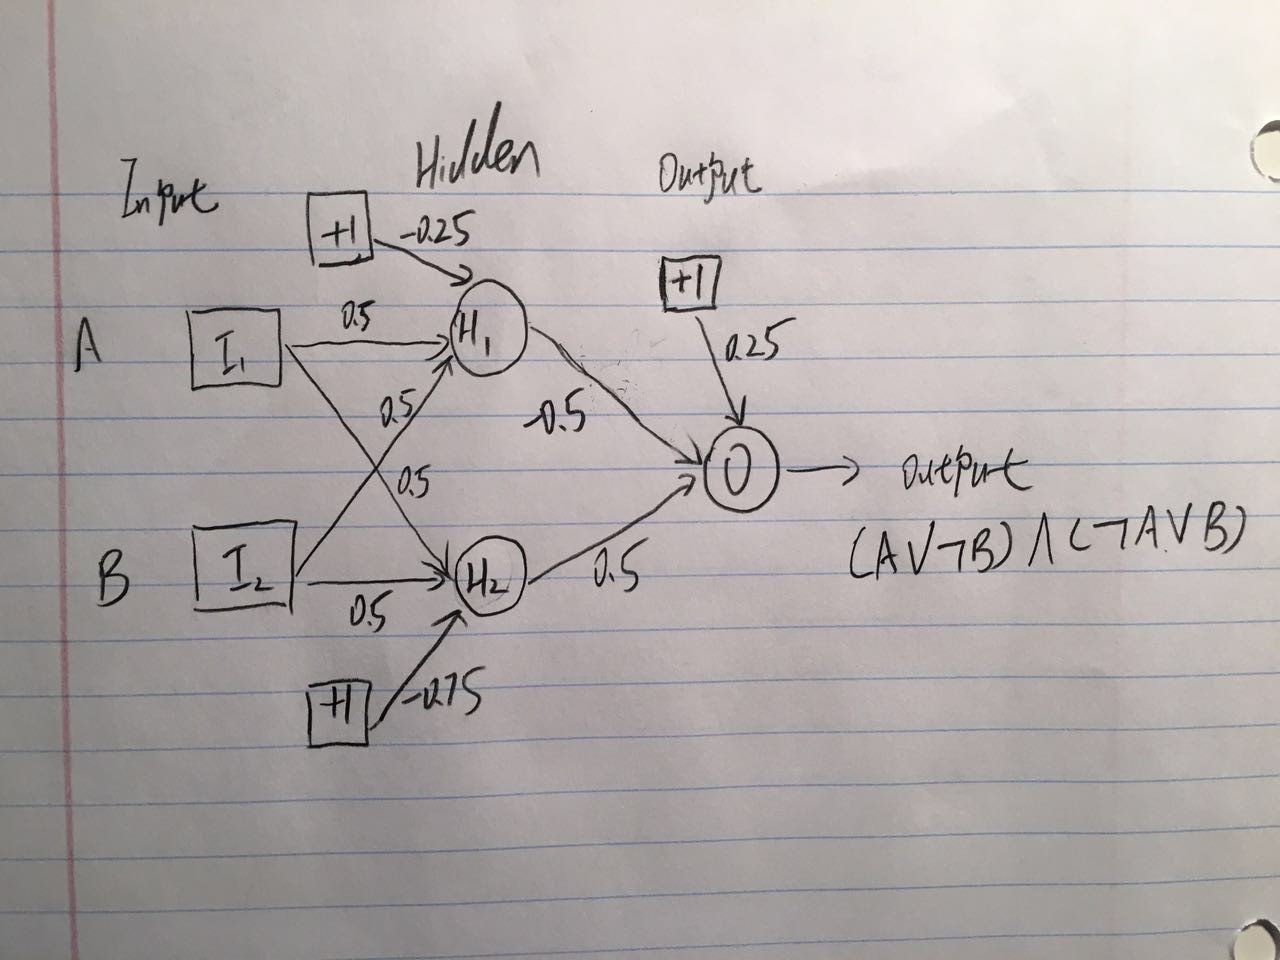 Input
Hidden
Output
+1
-0.25
+1
A
I₁
0.5
H₁
0.25
0.5
-0.5
0.5
O
Output
(A∨¬B)∧(¬A∨B)
B
I₂
H₂
0.5
0.5
+1
-0.75